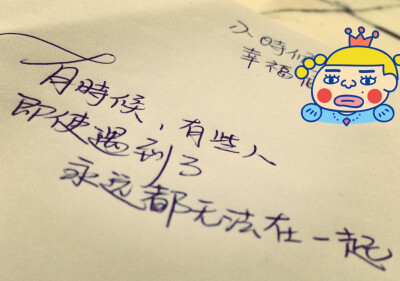 小時候
幸福
有時候，有些人
即使遇到了
永远都无法在一起